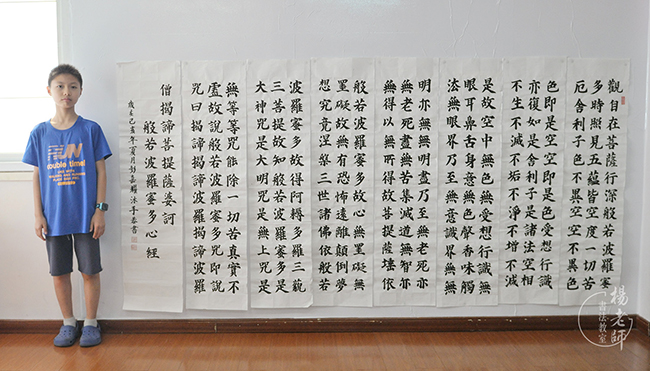 觀自在菩薩行深般若波羅蜜
多時照見五蘊皆空度一切苦
厄舍利子色不異空空不異色
色即是空空即是色受想行識
亦復如是舍利子是諸法空相
不生不滅不垢不淨不增不減
是故空中無色無受想行識無
眼耳鼻舌身意無色聲香味觸
法無眼界乃至無意識界無無
明亦無無明盡乃至無老死亦
無老死盡無苦集滅道無智亦
無得以無所得故菩提薩埵依
般若波羅蜜多故心無罣礙無
罣礙故無有恐怖遠離顛倒夢
想究竟涅槃三世諸佛依般若
波羅蜜多故得阿耨多羅三藐
三菩提故知般若波羅蜜多是
大神咒是大明咒是無上咒是
無等等咒能除一切苦真實不
虛故說般若波羅蜜多咒即說
咒曰揭諦揭諦波羅揭諦波羅
僧揭諦菩提薩婆訶
般若波羅蜜多心經
己亥年夏月沐手恭書
ouble time!
楊老師
書法教室